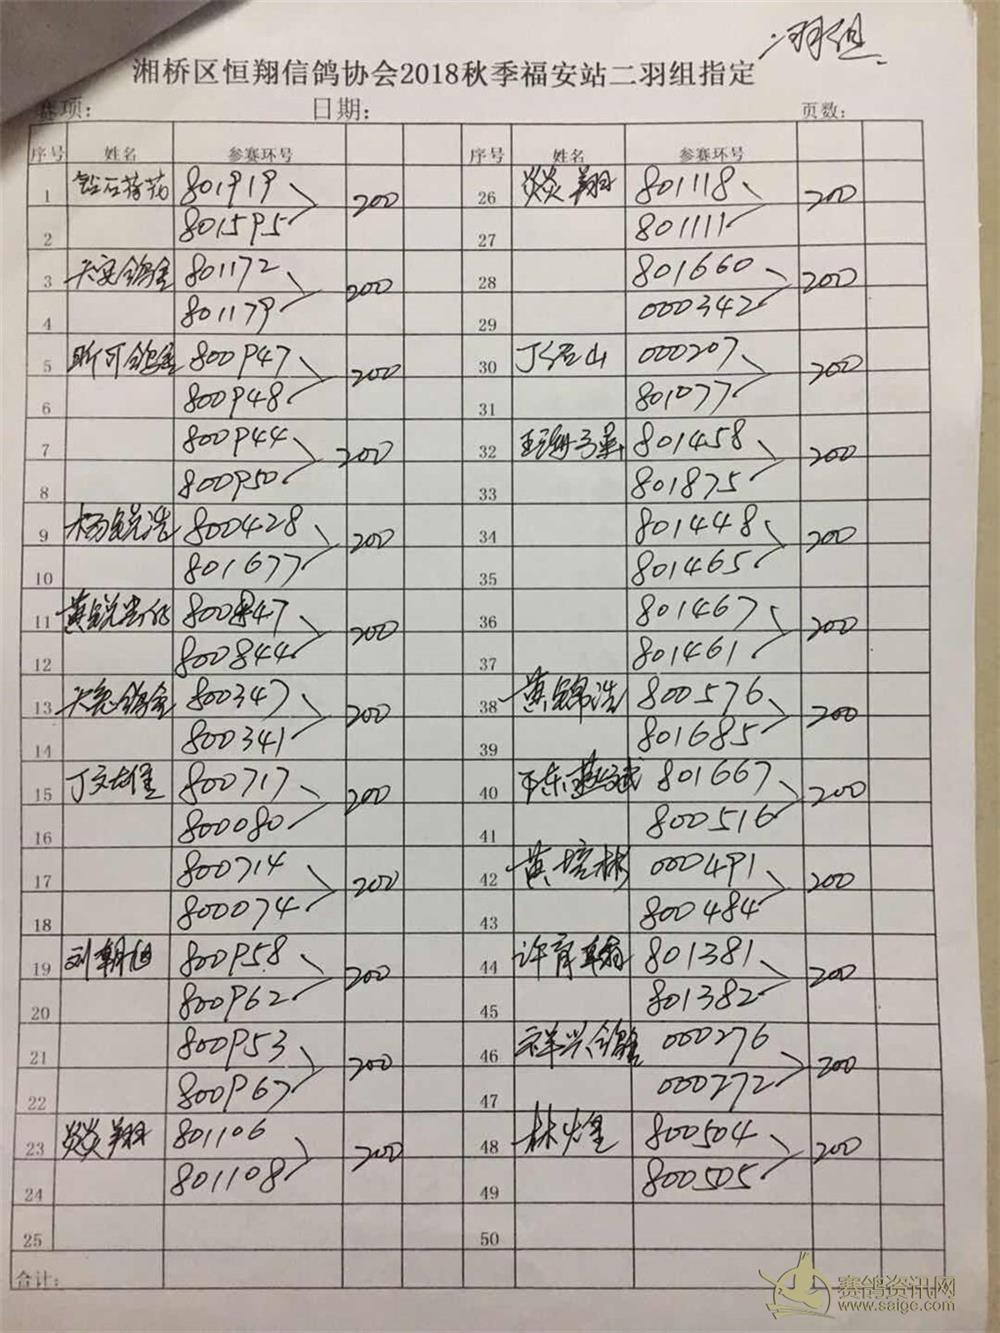 二羽组
湘桥区恒翔信鸽协会2018秋季福安站二羽组指定
赛项: 日期: 页数:
序号 姓名 参赛环号 序号 姓名 参赛环号
1 801919 200 26 焱翔 801118 200
2 801595 27 801111
3 天宝鸽舍 801172 200 28 801660 200
4 801179 29 000342
5 昕可鸽舍 800947 200 30 丁 山 000207 200
6 800948 31 801077
7 800944 200 32 801458 200
8 800950 33 801875
9 杨锐浩 800428 200 34 801448 200
10 801677 35 801465
11 黄锐 800847 200 36 801467 200
12 800844 37 801461
13 天宝鸽舍 800347 200 38 黄锦浩 800576 200
14 800341 39 801685
15 丁文雄 800717 200 40 801667 200
16 800080 41 800516
17 800714 200 42 黄培彬 000491 200
18 800074 43 800484
19 刘朝旭 800958 200 44 许育翰 801381 200
20 800962 45 801382
21 800953 200 46 祥兴鸽舍 000276 200
22 800967 47 000272
23 焱翔 801106 200 48 林煌 800504 200
24 801108 49 800505
25 50
合计:
赛鸽资讯网
www.saige.com